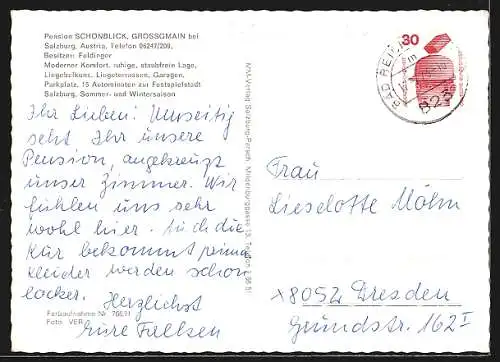 Pension SCHÖNBLICK, GROSSGMAIN bei
Salzburg, Austria, Telefon 06247/209,
Besitzer: Feldinger
Moderner Komfort, ruhige, staubfreie Lage,
Liegebalkons, Liegeterrassen, Garagen,
Parkplatz, 15 Autominuten zur Festspielstadt
Salzburg, Sommer- und Wintersaison
Ihr Lieben! Umseitig
seht Ihr unsere
Pension, angekreuzt
unser Zimmer. Wir
fühlen uns sehr
wohl hier. Auch die
Kur bekommt prima
Kleider werden schon
locker. Herzlichst
Eure Fallsen
Farbaufnahme Nr. 7663
Foto: VER
-Verlag Salzburg-Parsch
30
BAD REI
823
Frau
Lieselotte Möhn
x8052 Dresden
Grundstr. 162 I